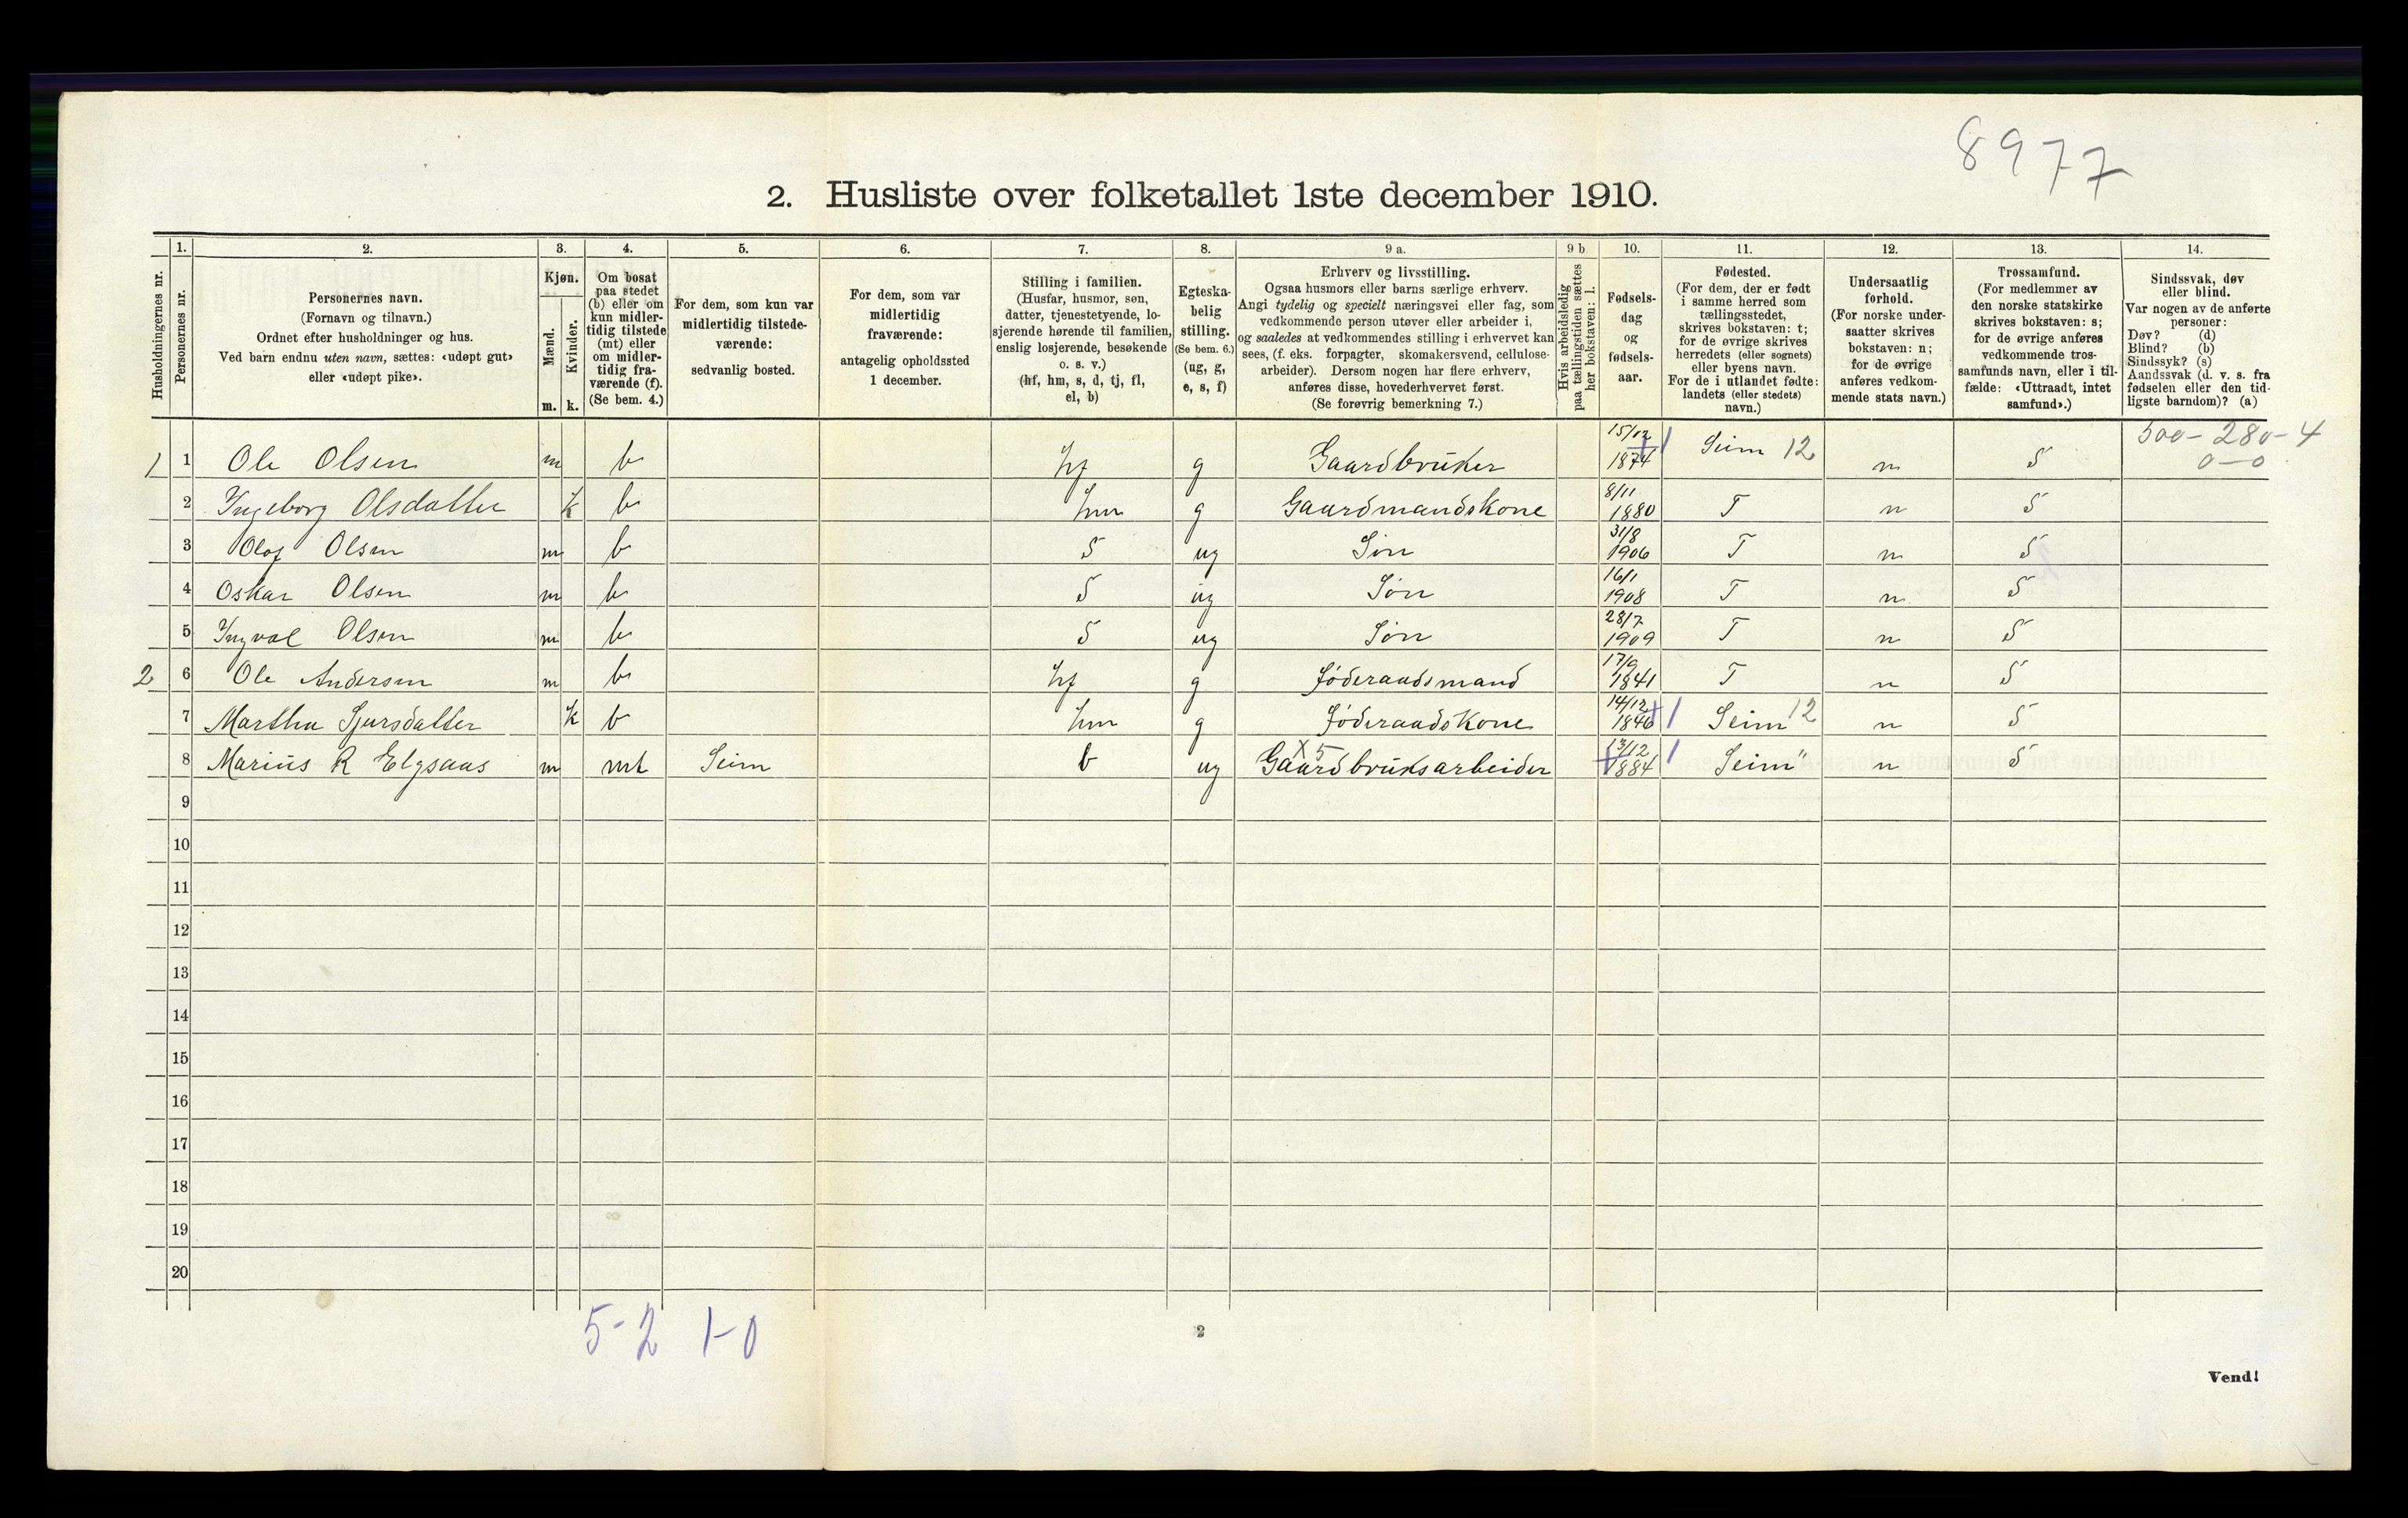 8977
2. Husliste over folketallet 1ste december 1910.
Husholdningernes nr.
1. Personernes nr.
2. Personernes navn. (Fornavn og tilnavn.) Ordnet efter husholdninger og hus. Ved barn endnu uten navn, sættes: «udøpt gut» eller «udøpt pike».
3. Kjøn. Mænd. m. Kvinder. k.
4. Om bosat paa stedet (b) eller om kun midlertidig tilstede (mt) eller om midlertidig fraværende (f). (Se bem. 4.)
5. For dem, som kun var midlertidig tilstedeværende: sedvanlig bosted.
6. For dem, som var midlertidig fraværende: antagelig opholdssted 1 december.
7. Stilling i familien. (Husfar, husmor, søn, datter, tjenestetyende, losjerende hørende til familien, enslig losjerende, besøkende o. s. v.) (hf, hm, s, d, tj, fl, el, b)
8. Egteskabelig stilling. (Se bem. 6.) (ug, g, e, s, f)
9 a. Erhverv og livsstilling. Ogsaa husmors eller barns særlige erhverv. Angi tydelig og specielt næringsvei eller fag, som vedkommende person utøver eller arbeider i, og saaledes at vedkommendes stilling i erhvervet kan sees, (f. eks. forpagter, skomakersvend, cellulosearbeider). Dersom nogen har flere erhverv, anføres disse, hovederhvervet først. (Se forøvrig bemerkning 7.)
9 b Hvis arbeidsledig paa tællingstiden sættes her bokstaven: l.
10. Fødselsdag og fødselsaar.
11. Fødested. (For dem, der er født i samme herred som tællingsstedet, skrives bokstaven: t; for de øvrige skrives herredets (eller sognets) eller byens navn. For de i utlandet fødte: landets (eller stedets) navn.)
12. Undersaatlig forhold. (For norske undersaatter skrives bokstaven: n; for de øvrige anføres vedkommende stats navn.)
13. Trossamfund. (For medlemmer av den norske statskirke skrives bokstaven: s; for de øvrige anføres vedkommende trossamfunds navn, eller i tilfælde: «Uttraadt, intet samfund».)
14. Sindssvak, døv eller blind. Var nogen av de anførte personer: Døv? (d) Blind? (b) Sindssyk? (s) Aandssvak (d. v. s. fra fødselen eller den tidligste barndom)? (a)
1 1 Ole Olsen m b hf g Gaardbruker 15/12 1874 Seim 12 n S 500-280-4 0-0
2 Ingeborg Olsdatter k b hm g Gaardmandskone 8/11 1880 T n S
3 Olof Olsen m b S ug Søn 31/8 1906 T n S
4 Oskar Olsen m b S ug Søn 16/1 1908 T n S
5 Ingval Olsen m b S ug Søn 28/7 1909 T n S
2 6 Ole Andersen m b hf g Føderaadsmand 17/9 1841 T n S
7 Martha Sjursdatter k b hm g Føderaadskone 14/12 1846 Seim 12 n S
8 Marius R Elgsaas m mt Seim b ug Gaardbruksarbeider x5 13/12 1884 Seim " n S
9
10
11
12
13
14
15
16
17
18
19
20
5-2 1-0
2
Vend!